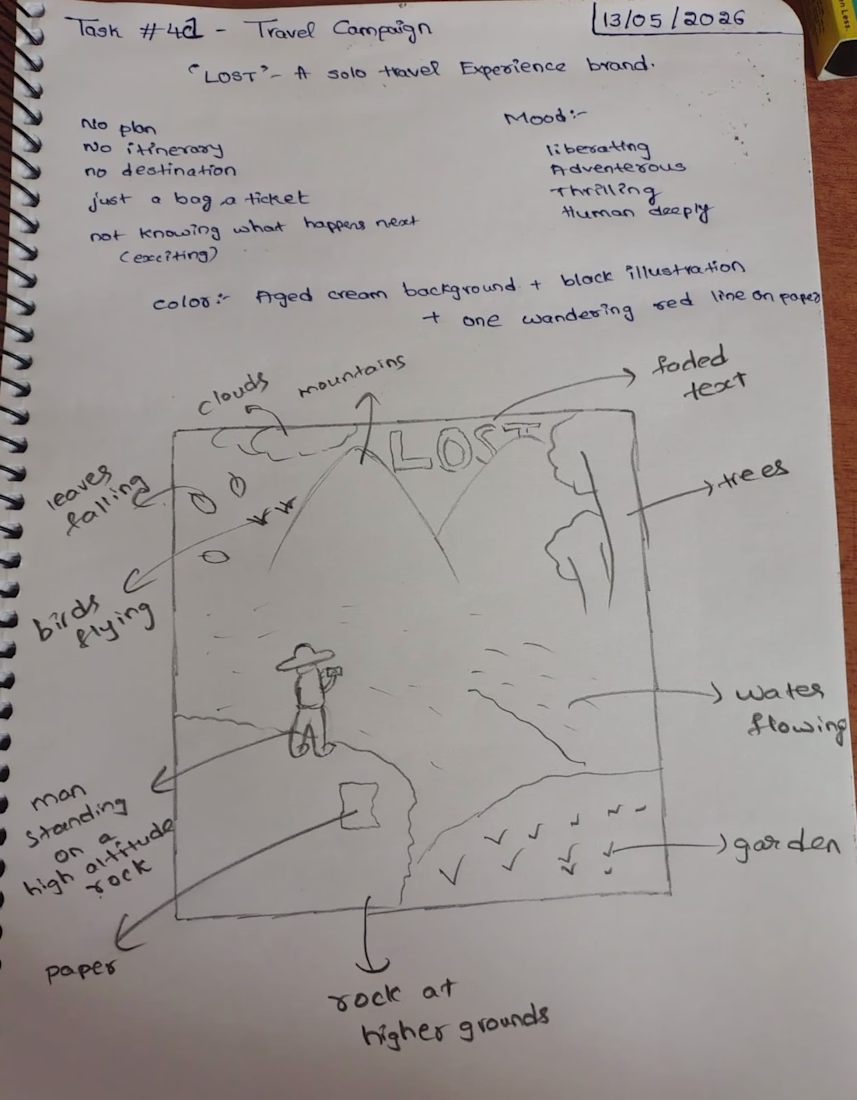 Task #4d - Travel Campaign
13/05/2026
"LOST" - A solo travel Experience brand.
No plan
No itinerary
no destination
just a bag a ticket
not knowing what happens next
(exciting)
Mood:-
liberating
Adventerous
Thrilling
Human deeply
color:- Aged cream background + black illustration
+ one wandering red line on paper
clouds
mountains
faded
text
LOST
leaves
falling
trees
birds
flying
water
flowing
man
standing
on a
high altitude
rock
garden
paper
rock at
higher grounds